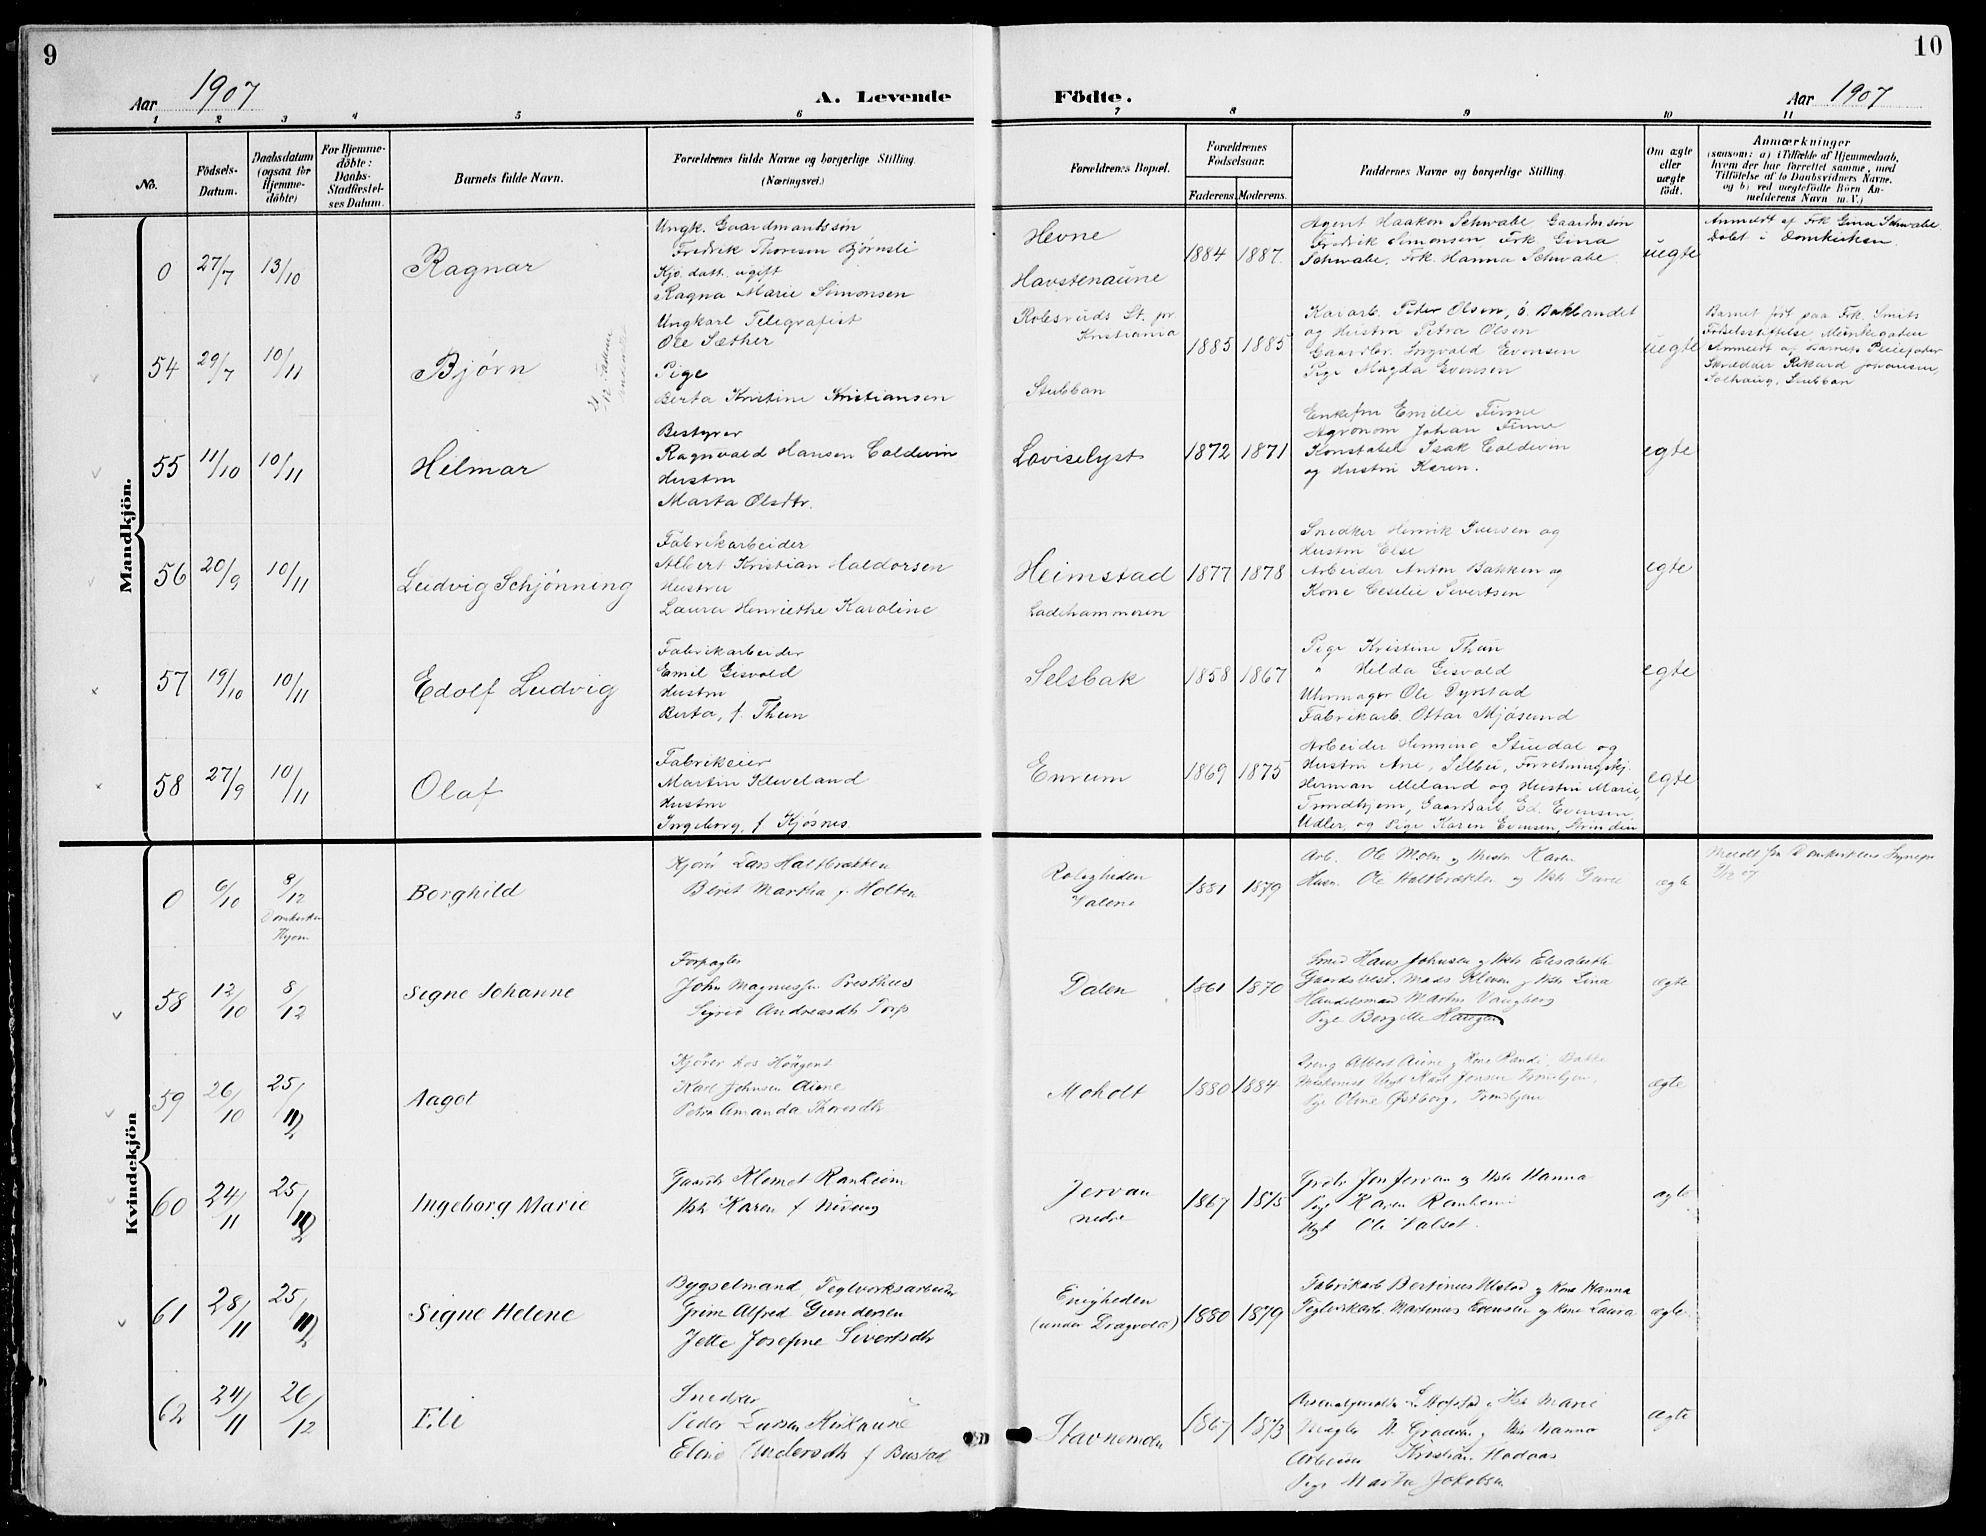 9
10
Aar 1907
A. Levende
Födte.
Aar 1907
1 2 3 4 5 6 7 8 9 10 11
No.
Födsels-
Datum.
Daabsdatum
(ogsaa for
Hjemme-
döbte)
For Hjemme-
döbte:
Daabs-
Stadfæstel-
ses Datum.
Barnets fulde Navn.
Forældrenes fulde Navne og borgerlige Stilling.
(Næringsvei.)
Forældrenes Bopæl.
Forældrenes
Födselsaar.
Faderens. Moderens.
Faddernes Navne og borgerlige Stilling.
Om ægte
eller
uægte
födt.
Anmærkninger
(saasom: a) i Tilfælde af Hjemmedaab,
hvem der har forrettet samme, med
Tilföielse af to Daabsvidners Navne,
og b) ved uægtefödte Börn An-
melderens Navn m. V.)
Mandkjön.
0 27/7 13/10 Ragnar
Ungk. Gaardmandssøn
Fredrik Thoresen Bjørnsli
Kjø. datt. ugift
Ragna Marie Simonsen
Hevne
Havstenaune
1884 1887.
Agent Haakon Schwabe Gaardmsøn
Fredrik Simonsen Frk. Gina
Schwabe, Frk. Hanna Schwabe.
uegte
Anmeldt af Frk Gina Schwabe
Døbt i Domkirken.
54 29/7 10/11 Bjørn
Ungkarl Telegrafist
Ole Sæther
Pige
Berta Kristine Kristiansen
Rolesvuds St. pr
Kristiania
Stubban
1885 1885
Kararb. Peder Olsen, ö. Baklandet
og Hustru Petra Olsen
Gaardbr. Ingvald Evensen
Pige Magda Evensen
uegte
Barnet født paa Frk. Smits
Fødselsstiftelse, Munkegaten
Anmeldt af Barnets Pleiefader
Skrædder Rikard Johansen,
Solhaug, Stubban
55 11/10 10/11 Hilmar
Bestyrer
Ragnvald Hansen Coldevin
Hustru
Marta Olsdtr.
Loviselyst
1872 1871
Enkefru Emilie Finne
Agronom Johan Finne
Konstabel Isak Coldevin
og Hustru Karen.
egte
56 20/9 10/11 Ludvig Schjønning
Fabrikarbeider
Albert Kristian Haldorsen
Hustru
Laura Henriethe Karoline
Heimstad
Ladehammeren
1877 1878
Snedker Henrik Iversen og
Hustru Else
Arbeider Anton Bakken og
Kone Cesilie Sivertsen
egte
57 19/10 10/11 Edolf Ludvig
Fabrikarbeider
Emil Gisvold
Hustru
Berta, f. Thun
Selsbak
1858 1867
Pige Kristine Thun
" Helda Gisvold
Uhrmager Ole Dyrstad
Fabrikarb. Ottar Mjøsund
egte
58 27/9 10/11 Olaf
Fabrikeier
Martin Kleveland
Hustru
Ingeborg, f Kjøsnes
Enrum
1869 1875
Arbeider Henning Stuedal og
Hustru Ane, Selbu, Forretningskj.
Herman Meland og Hustru Marie,
Trondhjem, Gaardarb. Ed. Evensen,
Udler, og Pige Karen Evensen, Strinden
egte
Kvindekjön
0 6/10 8/12 Borghild
Domkirken
Thjem
Kjører Lars Haltbrækken
Berit Martha f. Holten
Rolegheden
Valene
1881 1879
Arb. Ole Moen og Hustr Karen
Husm. Ole Haltbrækken og Hstr
ægte
Meldt fra Domkirkens Sognepr
9/12 07
58 12/10 8/12 Signe Johanne
Forpagter
John Magnussen Presthus
Sigrid Andreasdtr Torp
Dalen
1861 1870
Smed Hans Johnsen og Hstr Elisabeth
Gaardsbest. Mads Kleven og Hstr Lina
Handelsmand Martin Vangberg
Pige Borgitte Haugen
ægte
59 26/10 25/12 Aagot
Kjører hos Høiagent
Karl Johnsen Aune
Petra Amanda Thoresdtr
Moholt
1880 1884
Dreng Albert Aune og Kone Randi, Bakke
Maskinist Ungk Karl Jensen Trondhjem,
Pige Oline Østborg, Trondhjem
ægte
60 24/11 25/12 Ingeborg Marie
Gaardbr Klemet Ranheim
Hstr Karen f Nideng
Jervan
nedre
1867 1875
Grdbr Jon Jervan og Hstr Hanna
Pige Karen Ranheim
Ungk Ole Valset.
ægte
61 28/11 25/12 Signe Helene
Bygselmand, Teglverksarbeider
Grim Alfred Gundersen
Jette Josefine Sivertsdtr
Enigheden
(under Dragvold)
1880 1879
Fabrikarb Bertinus Ulstad og Kone Hanna
Teglverkarb. Martinus Evensen og Kone Laura
ægte.
62 24/11 26/12 Eli
Snedker
Peder Larsen Kirkaune
Eline Andersdtr f Bustad
Stavnemoen
1867 1873
Hstr Marie
Hstr Hanna
Arbeider Kristian Hadaas
Pige Martha Jakobsen
ægte